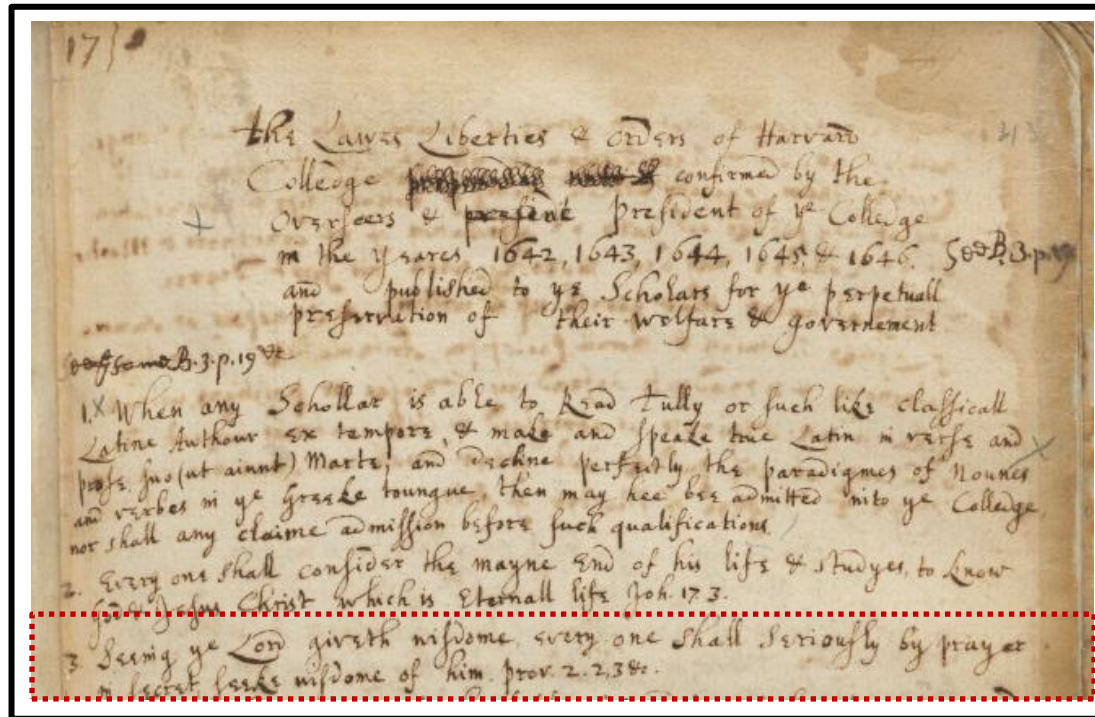 175
the Lawes Liberties & orders of Harvard
Colledge confirmed by the
Overseers & president of ye Colledge
in the yeares 1642, 1643, 1644, 1645, & 1646. See B.3.p.19
and published to ye Scholars for ye perpetuall
preservation of their welfare & governement
B.3.p.19 &c
1. X When any Schollar is able to Read Tully or such like classicall
Latine Authour ex tempore, & make and speake true Latin in verse and X
prose suo (ut aiunt) Marte, and decline perfectly the paradigmes of Nounes
and verbes in ye Greeke toungue, then may hee bee admitted into ye Colledge,
nor shall any claime admission before such qualifications.
2. Every one shall consider the mayne End of his life & studyes, to know
God & Jesus Christ which is Eternall life Joh. 17.3.
3. Seeing ye Lord giveth wisdome, every one shall seriously by prayer
in secret, seeke wisdome of him. prov. 2.2,3 &c.